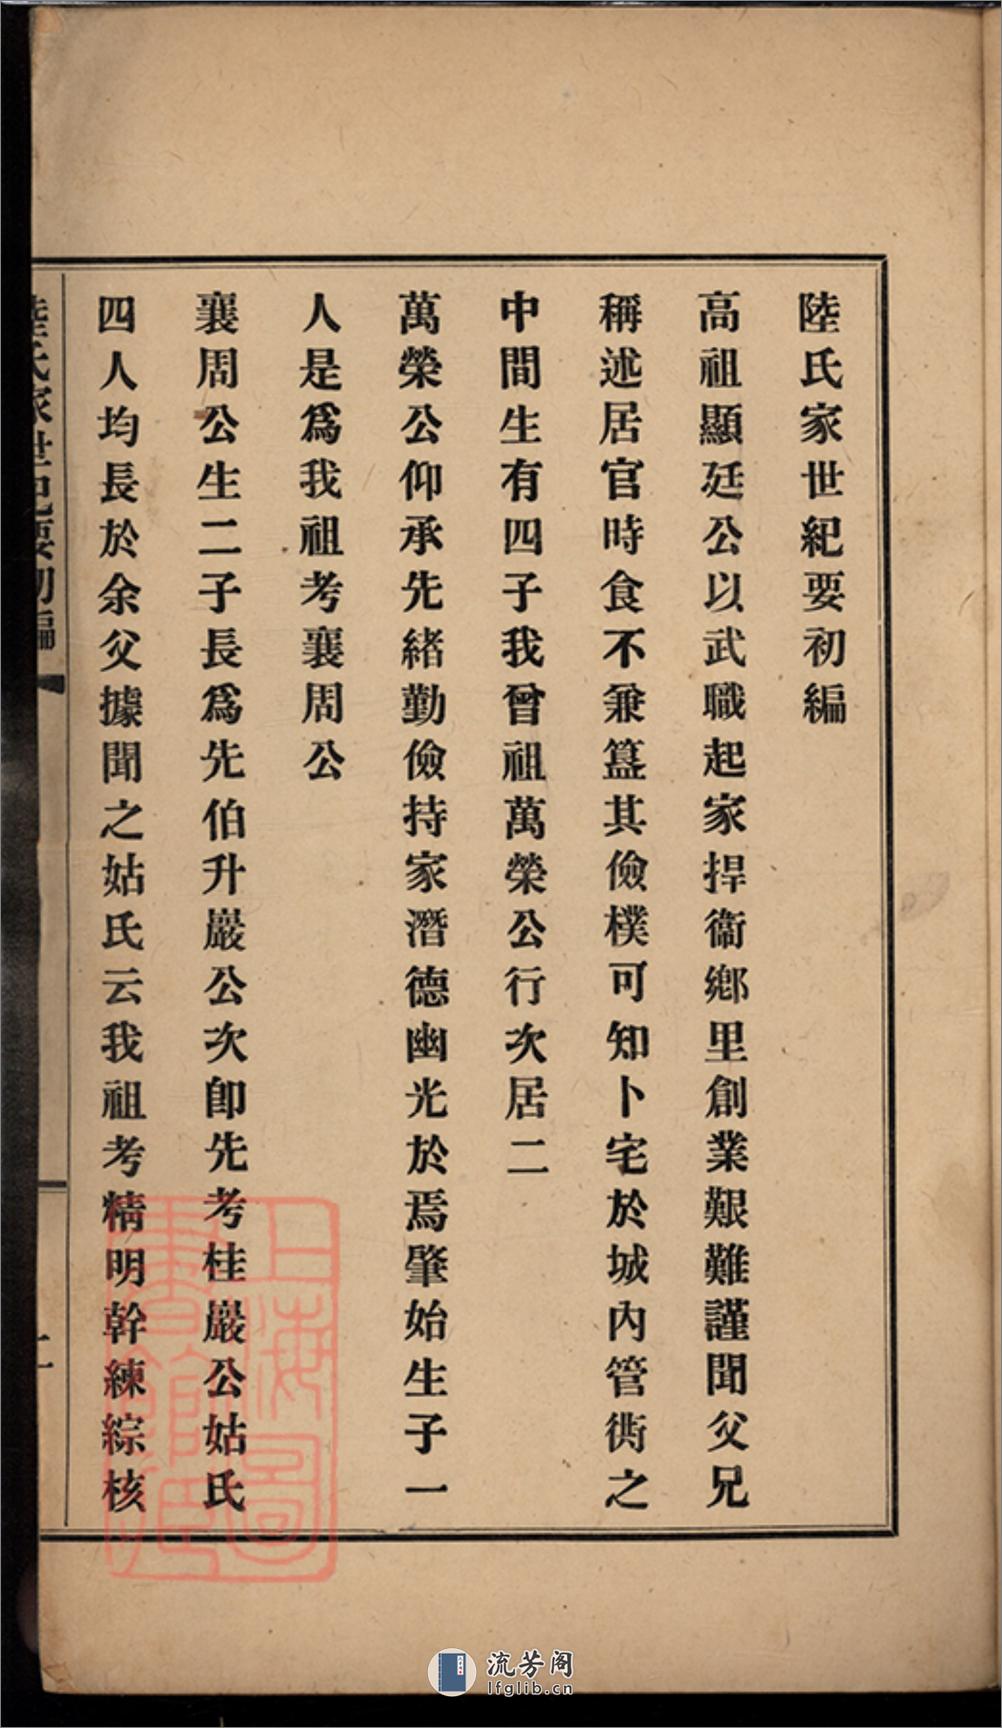 陸氏家世紀要初編
高祖顯廷公以武職起家捍衞鄉里創業艱難謹聞父兄
稱述居官時食不兼簋其儉樸可知卜宅於城內管衖之
中間生有四子我曾祖萬榮公行次居二
萬榮公仰承先緒勤儉持家潛德幽光於焉肇始生子一
人是爲我祖考襄周公
襄周公生二子長爲先伯升巖公次卽先考桂巖公姑氏
四人均長於余父據聞之姑氏云我祖考精明幹練綜核
陸氏家世紀要初編
上海圖書館藏
流芳阁
lfglib.cn